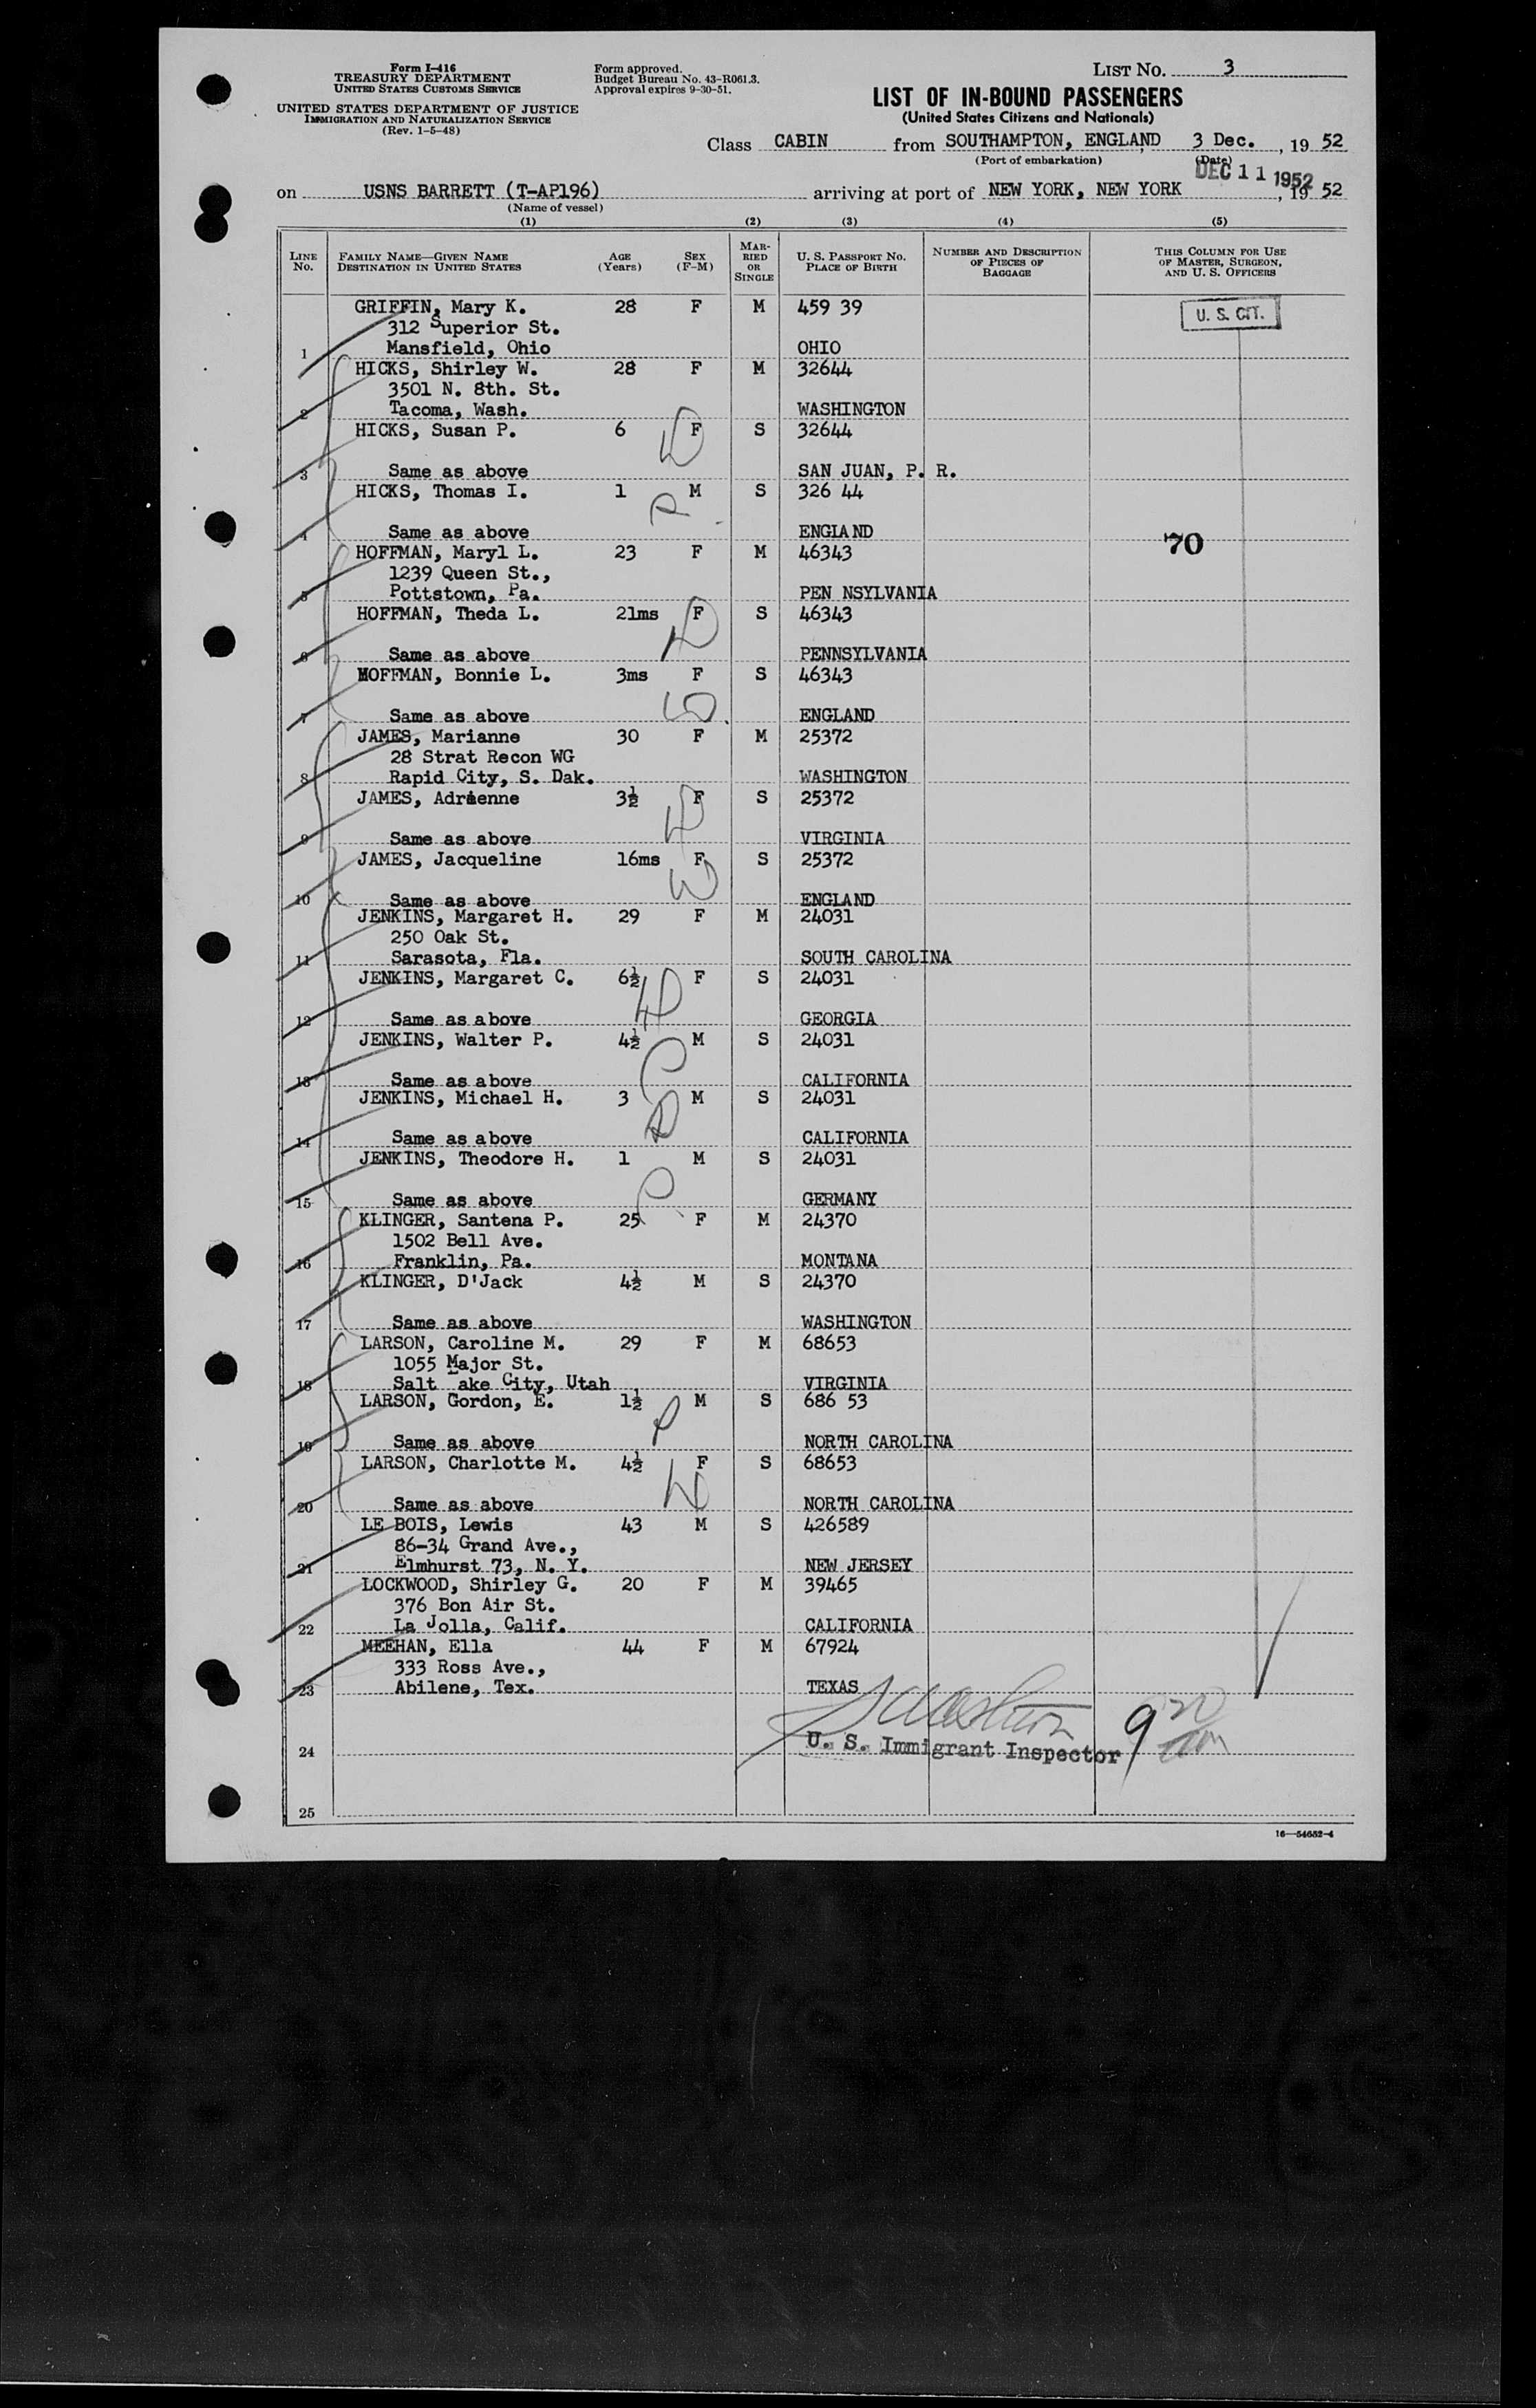 Form I-416
TREASURY DEPARTMENT
UNITED STATES CUSTOMS SERVICE
UNITED STATES DEPARTMENT OF JUSTICE
IMMIGRATION AND NATURALIZATION SERVICE
(Rev. 1-5-48)
Form approved.
Budget Bureau No. 43-R061.3.
Approval expires 9-30-51.
LIST NO. 3
LIST OF IN-BOUND PASSENGERS
(United States Citizens and Nationals)
Class CABIN from SOUTHAMPTON, ENGLAND 3 Dec. , 19 52
(Port of embarkation) (Date)
DEC 11 1952
on USNS BARRETT (T-AP196) arriving at port of NEW YORK, NEW YORK , 19 52
(Name of vessel)
(1) (2) (3) (4) (5)
LINE No. FAMILY NAME—GIVEN NAME DESTINATION IN UNITED STATES AGE (Years) SEX (F-M) MARRIED OR SINGLE U. S. PASSPORT NO. PLACE OF BIRTH NUMBER AND DESCRIPTION OF PIECES OF BAGGAGE THIS COLUMN FOR USE OF MASTER, SURGEON, AND U. S. OFFICERS
GRIFFIN, Mary K. 28 F M 459 39 U. S. CIT.
312 Superior St.
1 Mansfield, Ohio OHIO
HICKS, Shirley W. 28 F M 32644
3501 N. 8th. St.
2 Tacoma, Wash. WASHINGTON
HICKS, Susan P. 6 F S 32644
3 Same as above SAN JUAN, P. R.
HICKS, Thomas I. 1 M S 326 44
4 Same as above ENGLAND
70
HOFFMAN, Maryl L. 23 F M 46343
1239 Queen St.,
5 Pottstown, Pa. PEN NSYLVANIA
HOFFMAN, Theda L. 21ms F S 46343
6 Same as above PENNSYLVANIA
HOFFMAN, Bonnie L. 3ms F S 46343
7 Same as above ENGLAND
JAMES, Marianne 30 F M 25372
28 Strat Recon WG
8 Rapid City, S. Dak. WASHINGTON
JAMES, Adrienne 3½ F S 25372
9 Same as above VIRGINIA
JAMES, Jacqueline 16ms F S 25372
10 Same as above ENGLAND
JENKINS, Margaret H. 29 F M 24031
250 Oak St.
11 Sarasota, Fla. SOUTH CAROLINA
JENKINS, Margaret C. 6½ F S 24031
12 Same as above GEORGIA
JENKINS, Walter P. 4½ M S 24031
13 Same as above CALIFORNIA
JENKINS, Michael H. 3 M S 24031
14 Same as above CALIFORNIA
JENKINS, Theodore H. 1 M S 24031
15 Same as above GERMANY
KLINGER, Santena P. 25 F M 24370
1502 Bell Ave.
16 Franklin, Pa. MONTANA
KLINGER, D'Jack 4½ M S 24370
17 Same as above WASHINGTON
LARSON, Caroline M. 29 F M 68653
1055 Major St.
18 Salt Lake City, Utah VIRGINIA
LARSON, Gordon, E. 1½ M S 686 53
19 Same as above NORTH CAROLINA
LARSON, Charlotte M. 4½ F S 68653
20 Same as above NORTH CAROLINA
LE BOIS, Lewis 43 M S 426589
86-34 Grand Ave.,
21 Elmhurst 73, N. Y. NEW JERSEY
LOCKWOOD, Shirley G. 20 F M 39465
376 Bon Air St.
22 La Jolla, Calif. CALIFORNIA
MEEHAN, Ella 44 F M 67924
333 Ross Ave.,
23 Abilene, Tex. TEXAS
24 U. S. Immigrant Inspector
25
16—54652-4